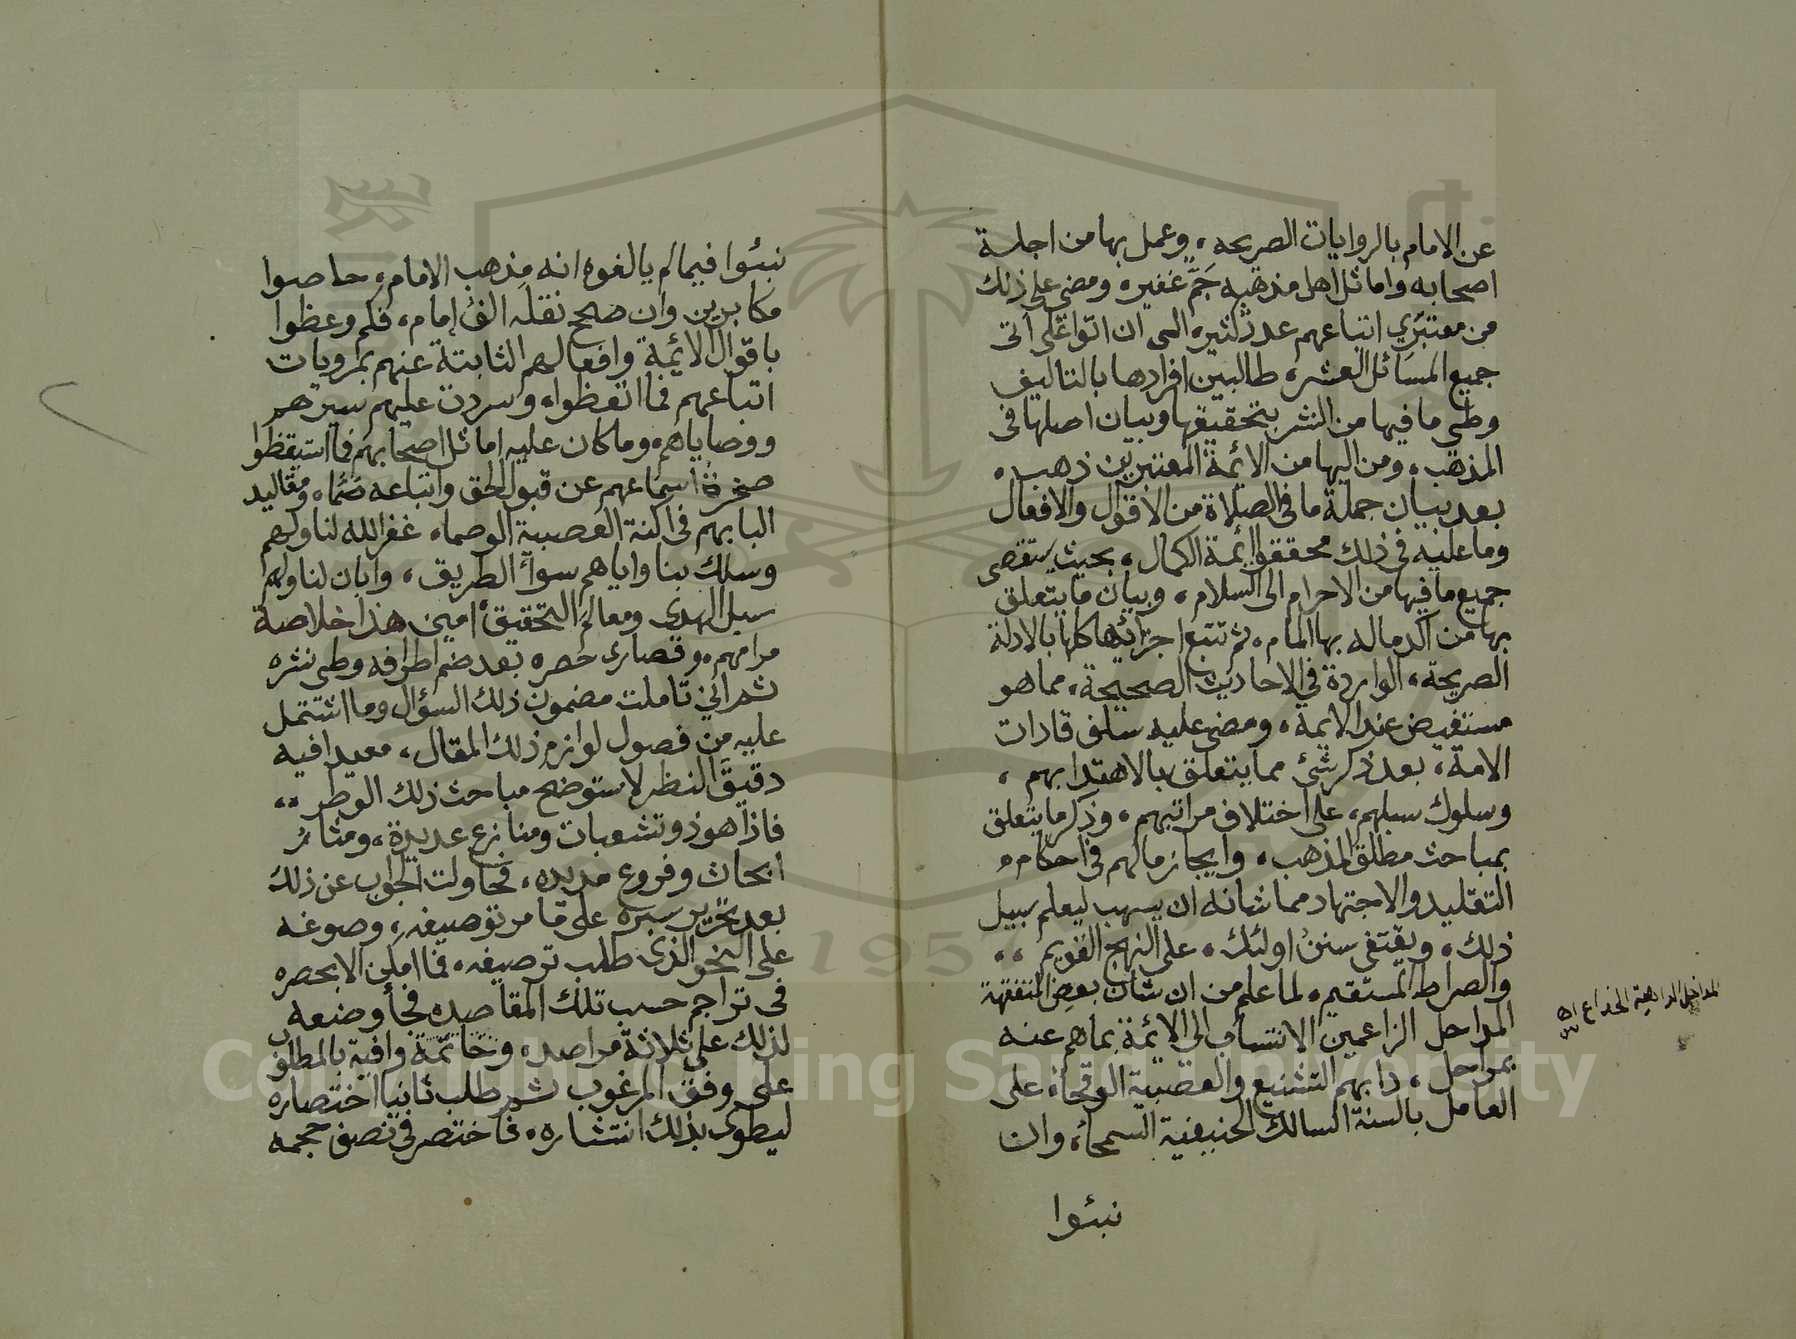 عن الامام بالروايات الصريحه، وعمل بها من اجلة
اصحابه واماثل اهل مذهبه جَمّ غفيره ومضى على ذلك
من معتبَري اتباعهم عدد كثيره الى ان اتوا على آتى
جميع المسائل العشره طالبين افرادها بالتاليف
وطي ما فيها من النشر بتحقيقها وبيان اصلها فى
المذهب، ومن اليها من الائمة المعتبرين ذهب،
بعد بيان جملة ما فى الصلاة من الاقوال والافعال
وما عليه فى ذلك محققوا ائمة الكمال، بحيث يستقصى
جميع ما فيها من الاحرام الى السلام، وبيان ما يتعلق
بها من آكد ماله بها المام، ثم تتبع اجزائها كلها بالادلة
الصريحة، الواردة في الاحاديث الصحيحة، مما هو
مستفيض عند الايمة، ومضى عليه سلف قادات
الامة، بعد ذكر شئ مما يتعلق بالاهتداء بهم،
وسلوك سبلهم، على اختلاف مراتبهم، وذكر ما يتعلق
بمباحث مطلق المذهب، وايجاز مالهم فى احكام
التقليد والاجتهاد مما شانه ان يسهب ليعلم سبيل
ذلك، ويقتفى سنن اولئك، على النهج القويم،،
والصراط المستقيم، لما علم من ان شان بعض المتفقهة
المداحل الزاعمين الانتساب الى الائمة بما هم عنه
بمراحل، دابهم التشنيع والعصبية الوقحاء على
العامل بالسنة السالك الحنيفية السمحاء، وان
نبئوا
المداحل الداهية الخداع اه
نبئوا فيما لم يالفوه انه مذهب الامام، حاصوا
مكابرين وان صحح نقله الف إمام، فلم وعظوا
باقوال الائمة وافعالهم الثابتة عنهم بمرويات
اتباعهم فما اتعظوا، وسردت عليهم سيرهم
ووصاياهم، وما كان عليه اماثل اصحابهم فما استيقظوا
صخرة اسماعهم عن قبول الحق واتباعه صمّاء ومقاليد
البابهم فى اكنة العصبية الوصماء غفر الله لنا ولهم
وسلك بنا واياهم سوآء الطريق، وابان لنا ولهم
سبل الهدى ومعالم التحقيق، امين هذا خلاصة
مرامهم، وقصارى حصره بعد ضم اطرافه وطي نشره
ثم اني تاملت مضمون ذلك السؤال وما اشتمل
عليه من فصول لوازم ذلك المقال، معيدا فيه
دقيق النظر لاستوضح مباحث ذلك الوطر،،
فاذا هو ذو تشعبات ومنازع عديدة، ومثائر
ابحاث وفروع مديده، فحاولت الجواب عن ذلك
بعد تحرير سبره على ما مر توصيفه، وصوغه
على النحو الذى طلب ترصيفه، فما امكن الا بحصره
فى تراجم حسب تلك المقاصده فجا وضعه
لذلك على ثلاثة مراصد، وخاتمة وافية بالمطلوب
على وفق المرغوب ثم طلب ثانيا اختصاره
ليطوى بذلك انتشاره، فاختصر فى نصف حجمه